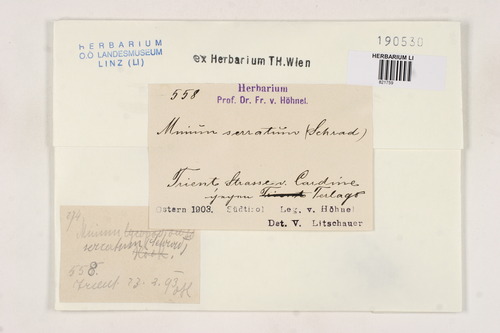 HERBARIUM
O.Ö LANDESMUSEUM
LINZ (LI)
ex Herbarium TH.Wien
190530
HERBARIUM LI
558
Herbarium
Prof. Dr. Fr. v. Höhnel.
Mniüm serratüm (Schrad)
Trient, Strasse v. Cardine
gegen Trient Terlago
Ostern 1903. Südtirol Leg. v. Höhnel
Det. V. Litschauer
Mnium
serratum
558.
Trient